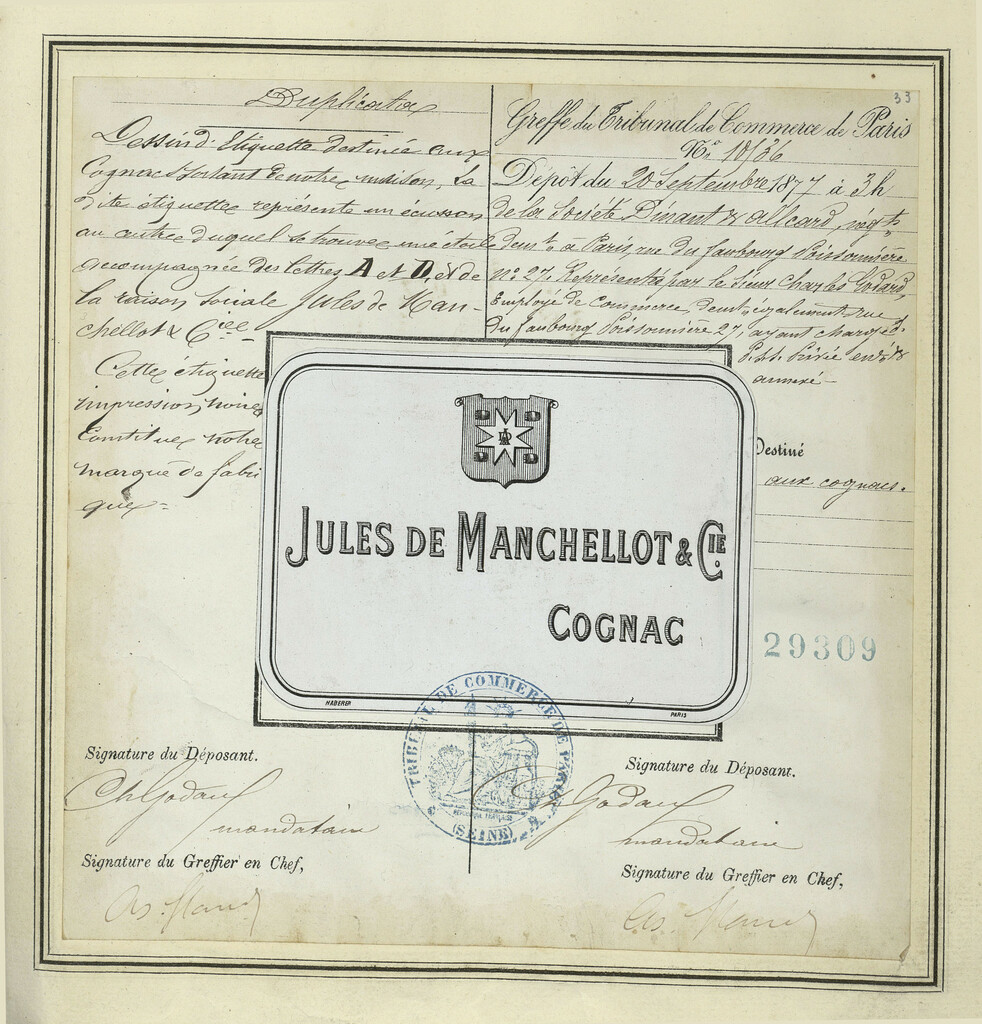 33
Duplicata
Dessin d'Etiquette destinée aux
Cognacs sortant de notre maison. La
dite etiquette représente un écusson
au centre duquel se trouve une étoile
accompagnée des lettres A et D, et de
la raison sociale Jules de Man-
chellot & Cie
Cette étiquette
impression noire
Constitue notre
marque de fabri
que
Greffe du Tribunal de Commerce de Paris
No. 10136
Dépôt du 20 Septembre 1877 à 3h
de la Société Dinant & Allcard, négts
demt. à Paris, rue du faubourg Poissonnière
no 27. Représentée par le Sieur Charles Godard,
Employé de Commerce, demt. également rue
du faubourg Poissonnière 27, ayant charge d.
annexé
Destiné
aux cognacs.
A D
JULES DE MANCHELLOT & CIE.
COGNAC
HABERER
PARIS
29309
TRIBUNAL DE COMMERCE DE PARIS
RÉPUBLIQUE FRANÇAISE
(SEINE)
Signature du Déposant.
Ch Godard
mandataire
Signature du Greffier en Chef,
Signature du Déposant.
Ch Godard
mandataire
Signature du Greffier en Chef,